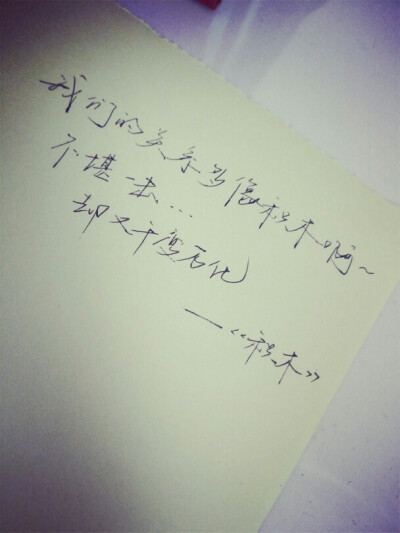 我们的关系多像积木啊~
不堪一击...
却又千变万化
—《积木》